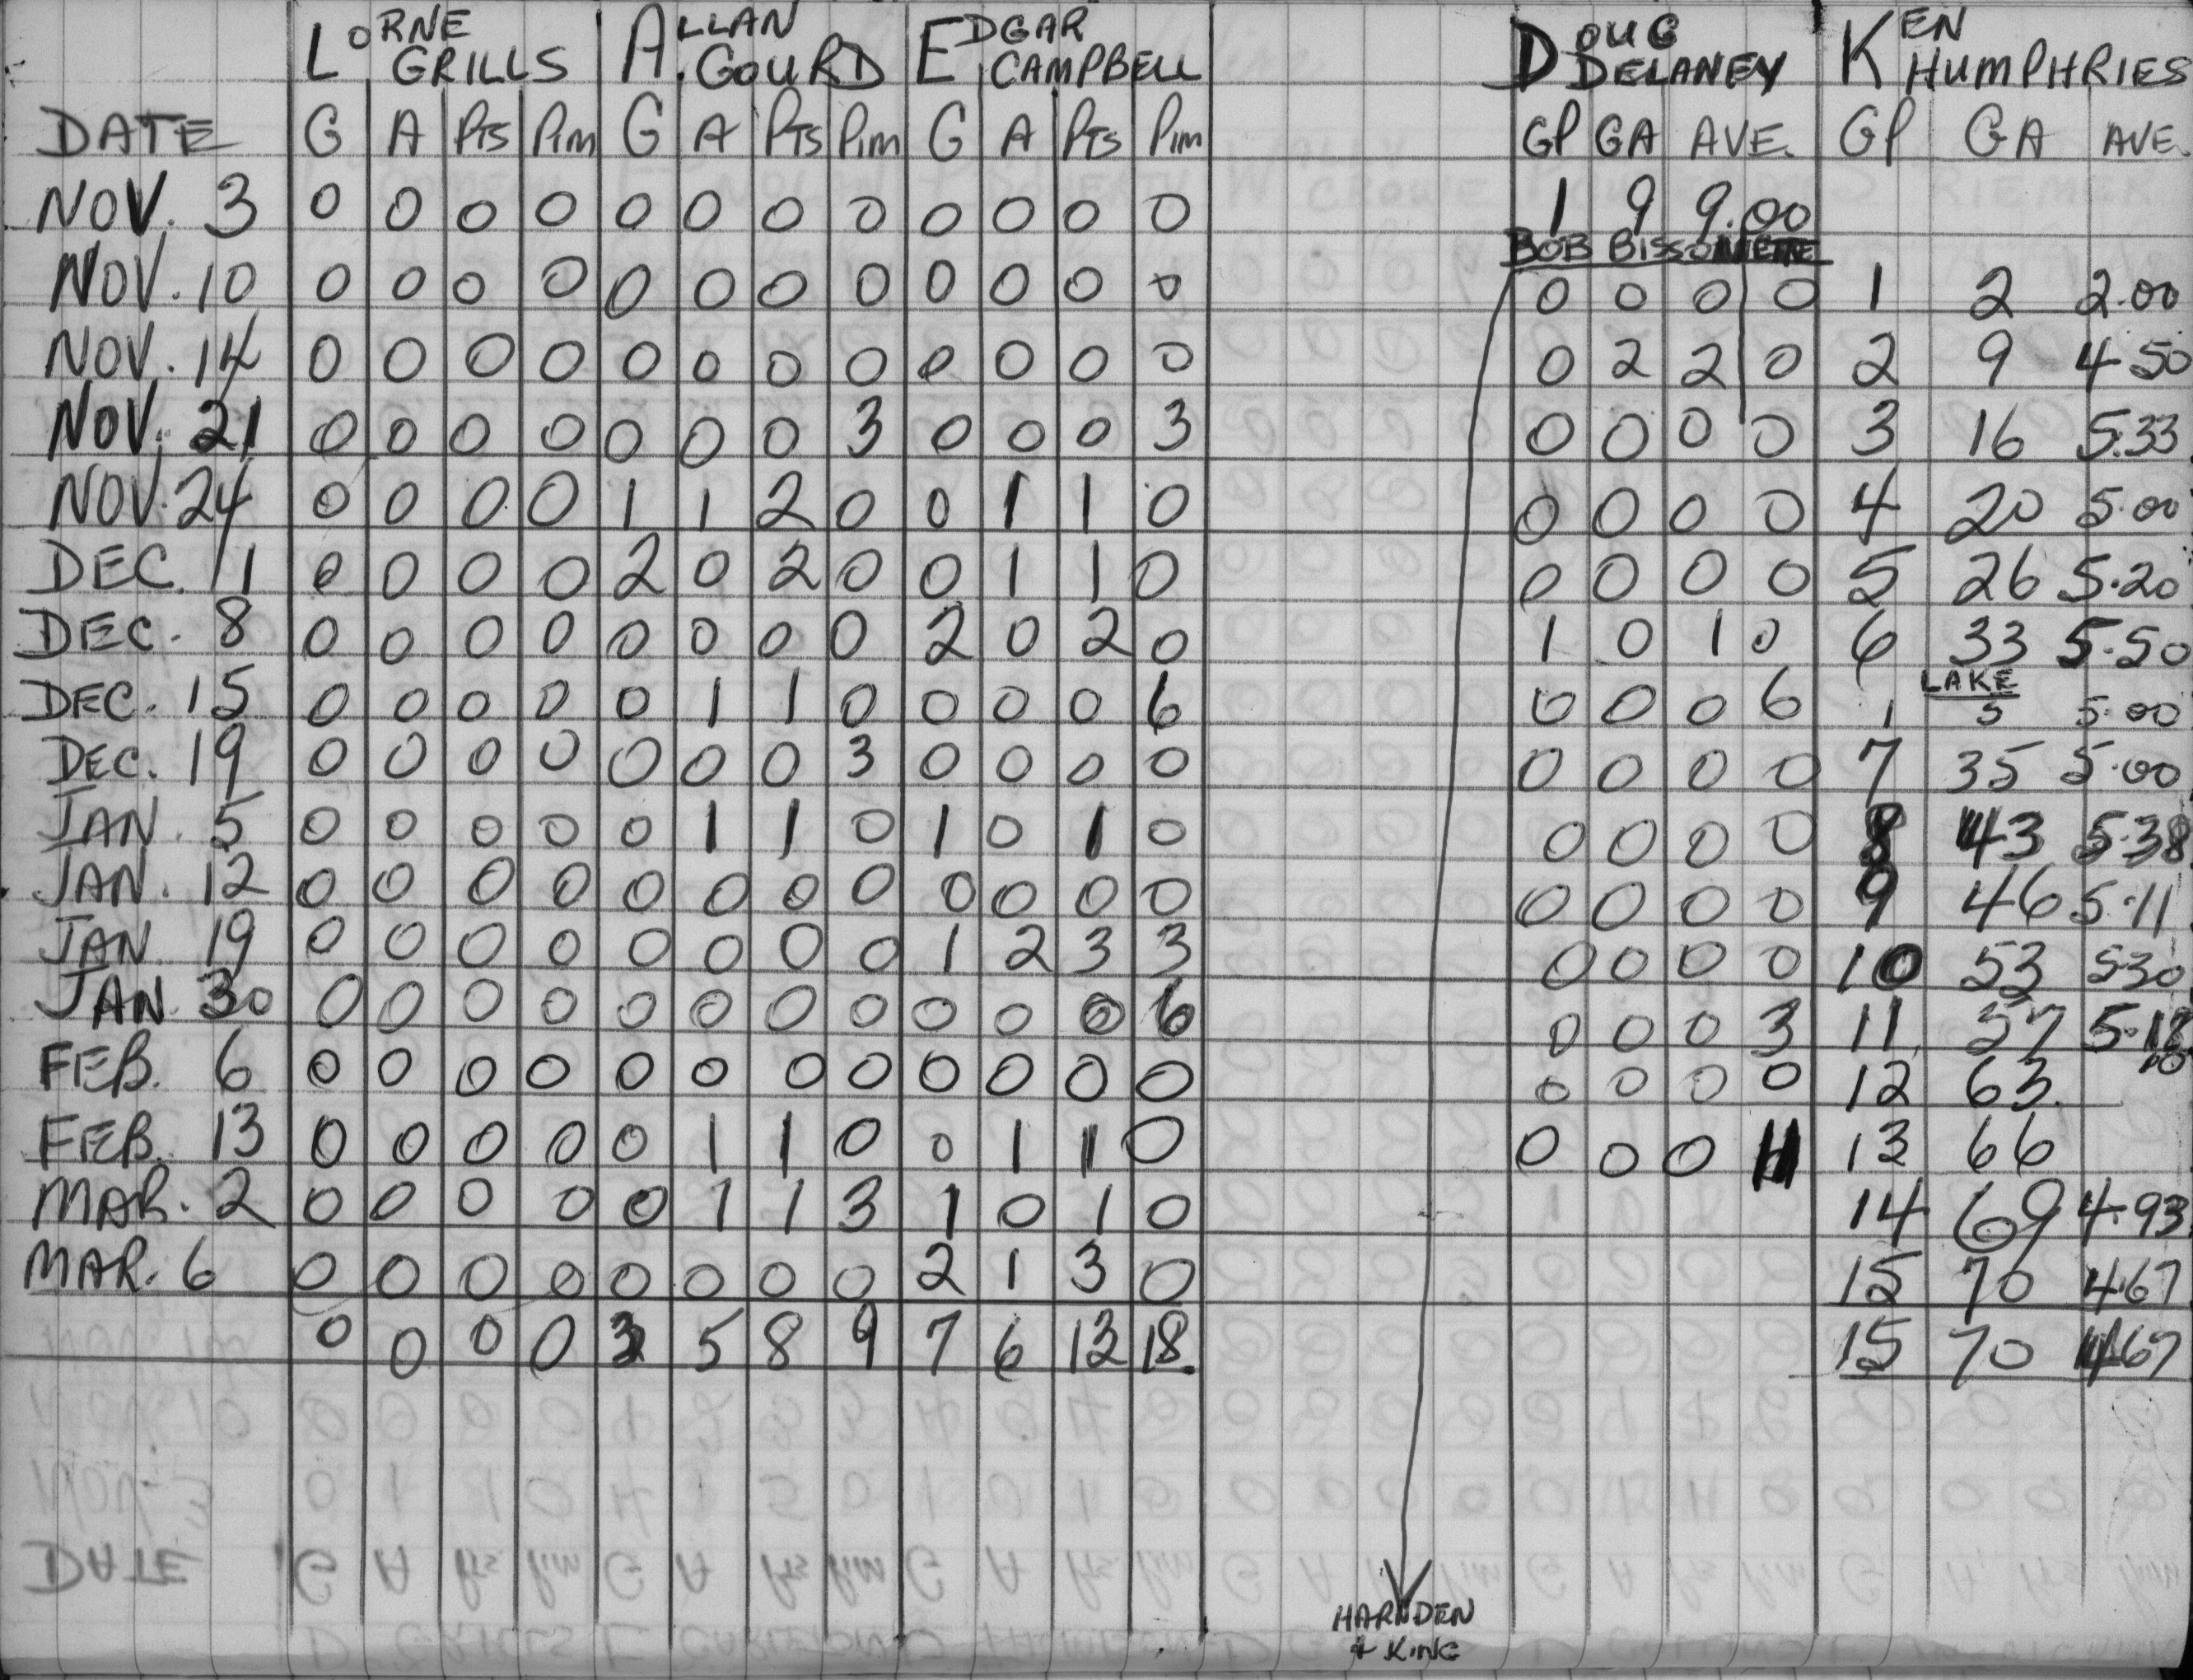 LORNE GRILLS ALLAN GOURD EDGAR CAMPBELL DOUG DELANEY KEN HUMPHRIES
DATE G A PTS PIM G A PTS PIM G A PTS PIM GP GA AVE. GP GA AVE.
NOV. 3 0 0 0 0 0 0 0 0 0 0 0 0 1 9 9.00
BOB BISSONETTE
NOV. 10 0 0 0 0 0 0 0 0 0 0 0 0 0 0 0 0 1 2 2.00
NOV. 14 0 0 0 0 0 0 0 0 0 0 0 0 0 2 2 0 2 9 4.50
NOV. 21 0 0 0 0 0 0 0 3 0 0 0 3 0 0 0 0 3 16 5.33
NOV. 24 0 0 0 0 1 1 2 0 0 1 1 0 0 0 0 0 4 20 5.00
DEC. 1 0 0 0 0 2 0 2 0 0 1 1 0 0 0 0 0 5 26 5.20
DEC. 8 0 0 0 0 0 0 0 0 2 0 2 0 1 0 1 0 6 33 5.50
LAKE
DEC. 15 0 0 0 0 0 1 1 0 0 0 0 6 0 0 0 6 1 5 5.00
DEC. 19 0 0 0 0 0 0 0 3 0 0 0 0 0 0 0 0 7 35 5.00
JAN. 5 0 0 0 0 0 1 1 0 1 0 1 0 0 0 0 0 8 43 5.38
JAN. 12 0 0 0 0 0 0 0 0 0 0 0 0 0 0 0 0 9 46 5.11
JAN. 19 0 0 0 0 0 0 0 0 1 2 3 3 0 0 0 0 10 53 530
JAN 30 0 0 0 0 0 0 0 0 0 0 0 6 0 0 0 3 11 57 5.18
FEB. 6 0 0 0 0 0 0 0 0 0 0 0 0 0 0 0 0 12 63
FEB. 13 0 0 0 0 0 1 1 0 0 1 1 0 0 0 0 13 66
MAR. 2 0 0 0 0 0 1 1 3 1 0 1 0 14 69 4.93
MAR. 6 0 0 0 0 0 0 0 0 2 1 3 0 15 70 4.67
0 0 0 0 3 5 8 9 7 6 13 18. 15 70 4.67
DATE
HARNDEN
& KING